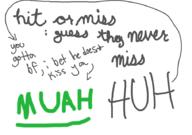 hit or miss
i guess they never
miss
HUH
you
gotta
bf i bet he doesnt
kiss you
MUAH